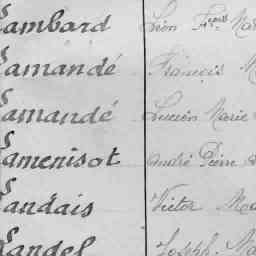 Lambard Léon Fçois Mar
Lamandé François M
Lamandé Lucien Marie
Lamenisot André Pierre
Landais Victor Ma
Landel Joseph Ma